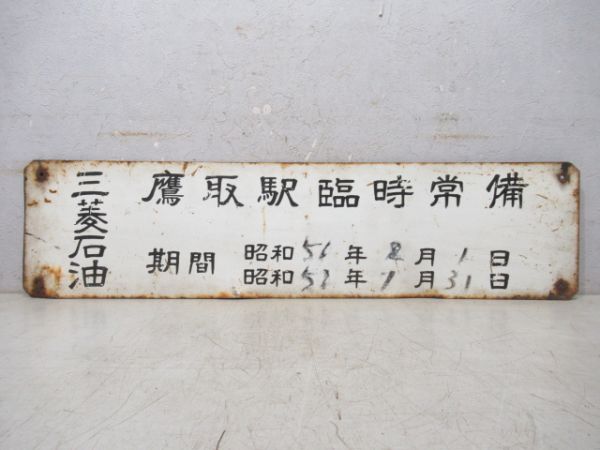 三菱石油
鷹取駅臨時常備
期間 昭和51年2月1日
昭和53年1月31日